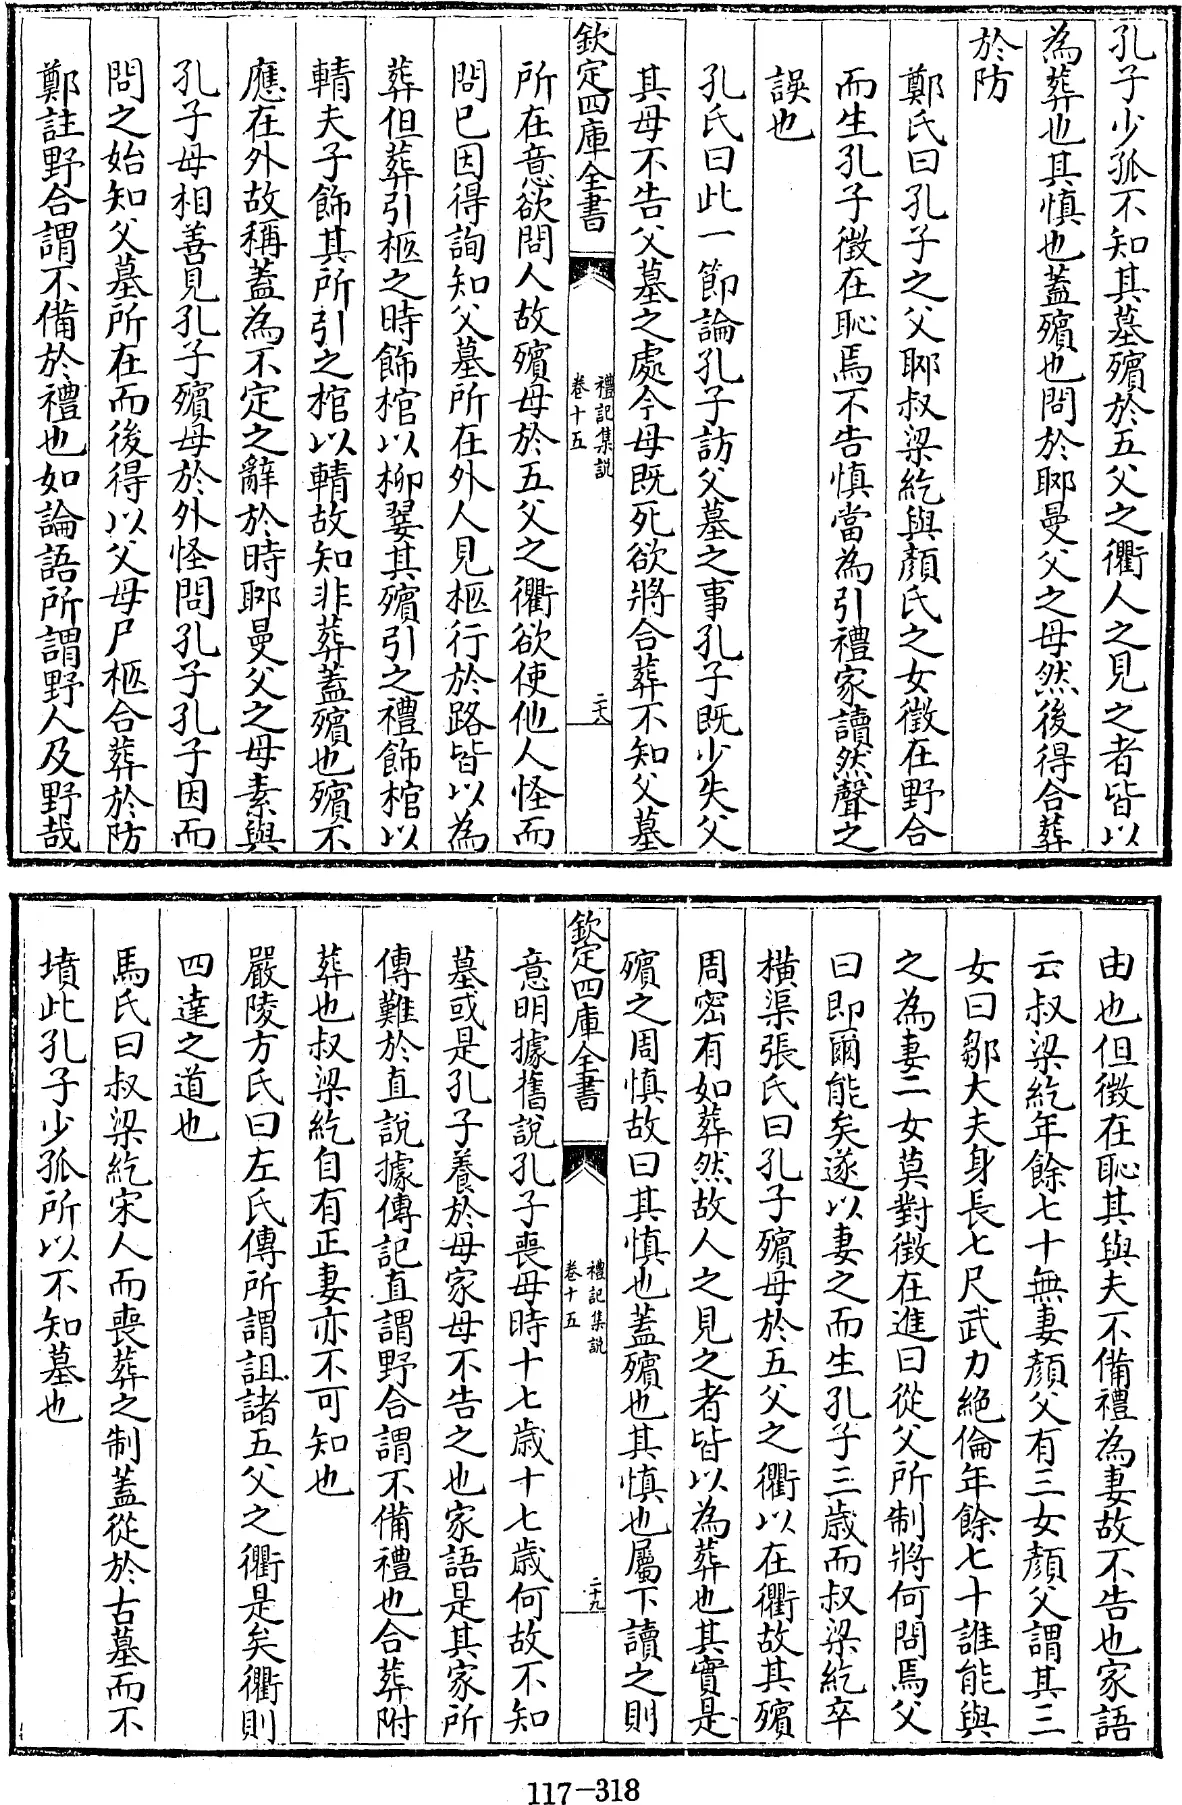 孔子少孤不知其墓殯於五父之衢人之見之者皆以
為葬也其慎也蓋殯也問於郰曼父之母然後得合葬
於防
鄭氏曰孔子之父郰叔梁紇與顏氏之女徵在野合
而生孔子徵在恥焉不告慎當為引禮家讀然聲之
誤也
孔氏曰此一節論孔子訪父墓之事孔子既少失父
其母不告父墓之處今母既死欲將合葬不知父墓
欽定四庫全書
禮記集說
卷十五
二十八
所在意欲問人故殯母於五父之衢欲使他人怪而
問已因得詢知父墓所在外人見柩行於路皆以為
葬但葬引柩之時飾棺以柳翣其殯引之禮飾棺以
輤夫子飾其所引之棺以輤故知非葬蓋殯也殯不
應在外故稱蓋為不定之辭於時郰曼父之母素與
孔子母相善見孔子殯母於外怪問孔子孔子因而
問之始知父墓所在而後得以父母尸柩合葬於防
鄭註野合謂不備於禮也如論語所謂野人及野哉
由也但徵在恥其與夫不備禮為妻故不告也家語
云叔梁紇年餘七十無妻顏父有三女顏父謂其三
女曰鄒大夫身長七尺武力絶倫年餘七十誰能與
之為妻二女莫對徵在進曰從父所制將何問焉父
曰即爾能矣遂以妻之而生孔子三歲而叔梁紇卒
橫渠張氏曰孔子殯母於五父之衢以在衢故其殯
周密有如葬然故人之見之者皆以為葬也其實是
殯之周慎故曰其慎也蓋殯也其慎也屬下讀之則
欽定四庫全書
禮記集說
卷十五
二十九
意明據舊說孔子喪母時十七歲十七歲何故不知
墓或是孔子養於母家母不告之也家語是其家所
傳難於直說據傳記直謂野合謂不備禮也合葬附
葬也叔梁紇自有正妻亦不可知也
嚴陵方氏曰左氏傳所謂詛諸五父之衢是矣衢則
四達之道也
馬氏曰叔梁紇宋人而喪葬之制蓋從於古墓而不
墳此孔子少孤所以不知墓也
117-318